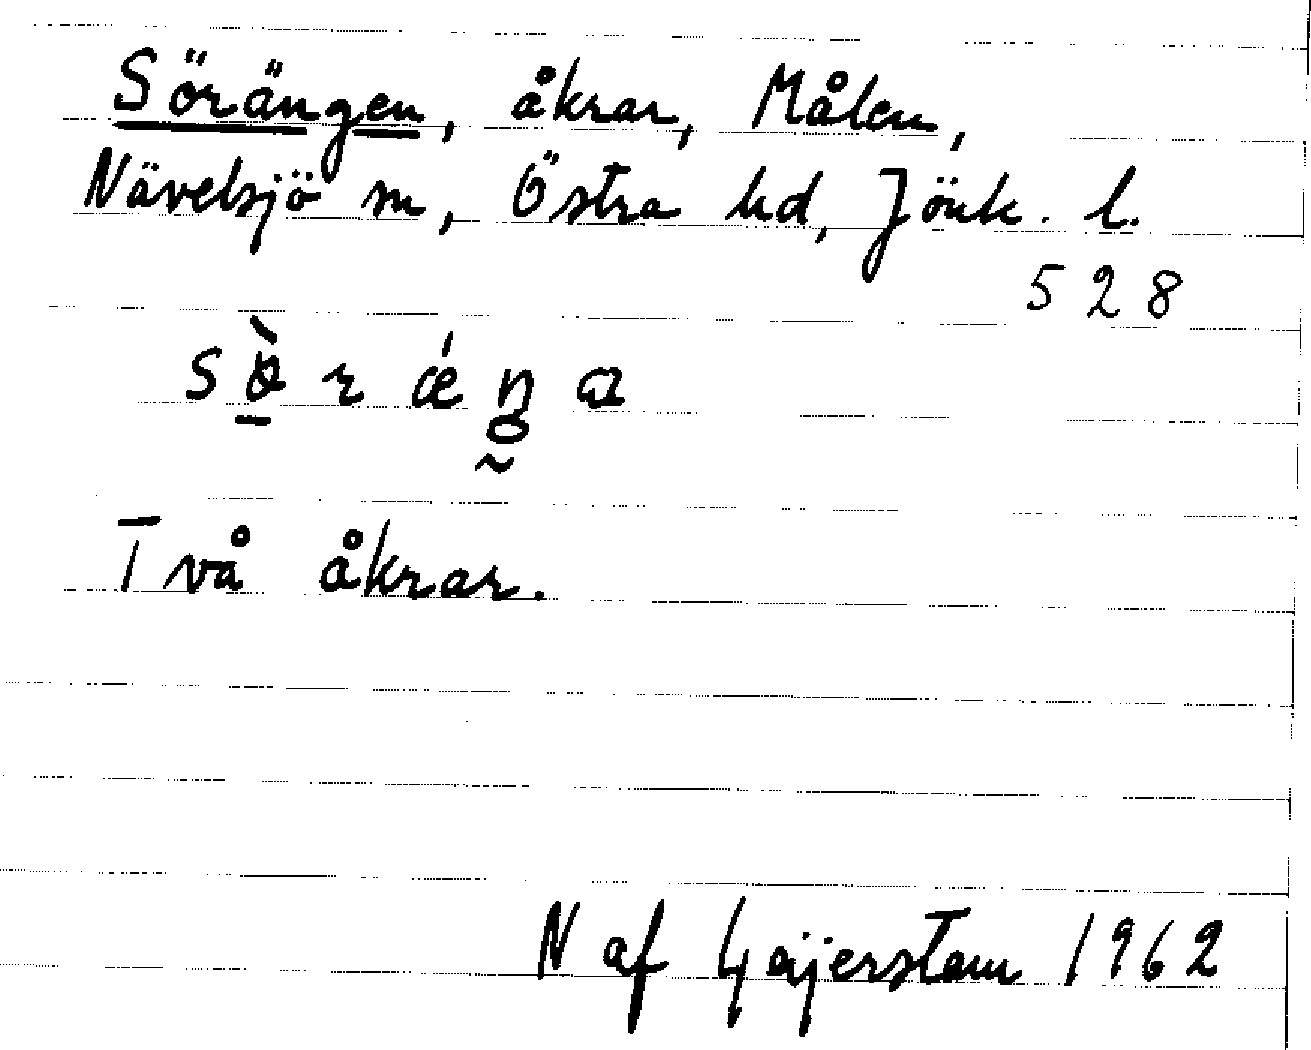 Sörängen, åkrar, Målen,
Nävelsjö sn, Östra hd, Jönk. l.
528
Två åkrar.
N af Geijerstam 1962